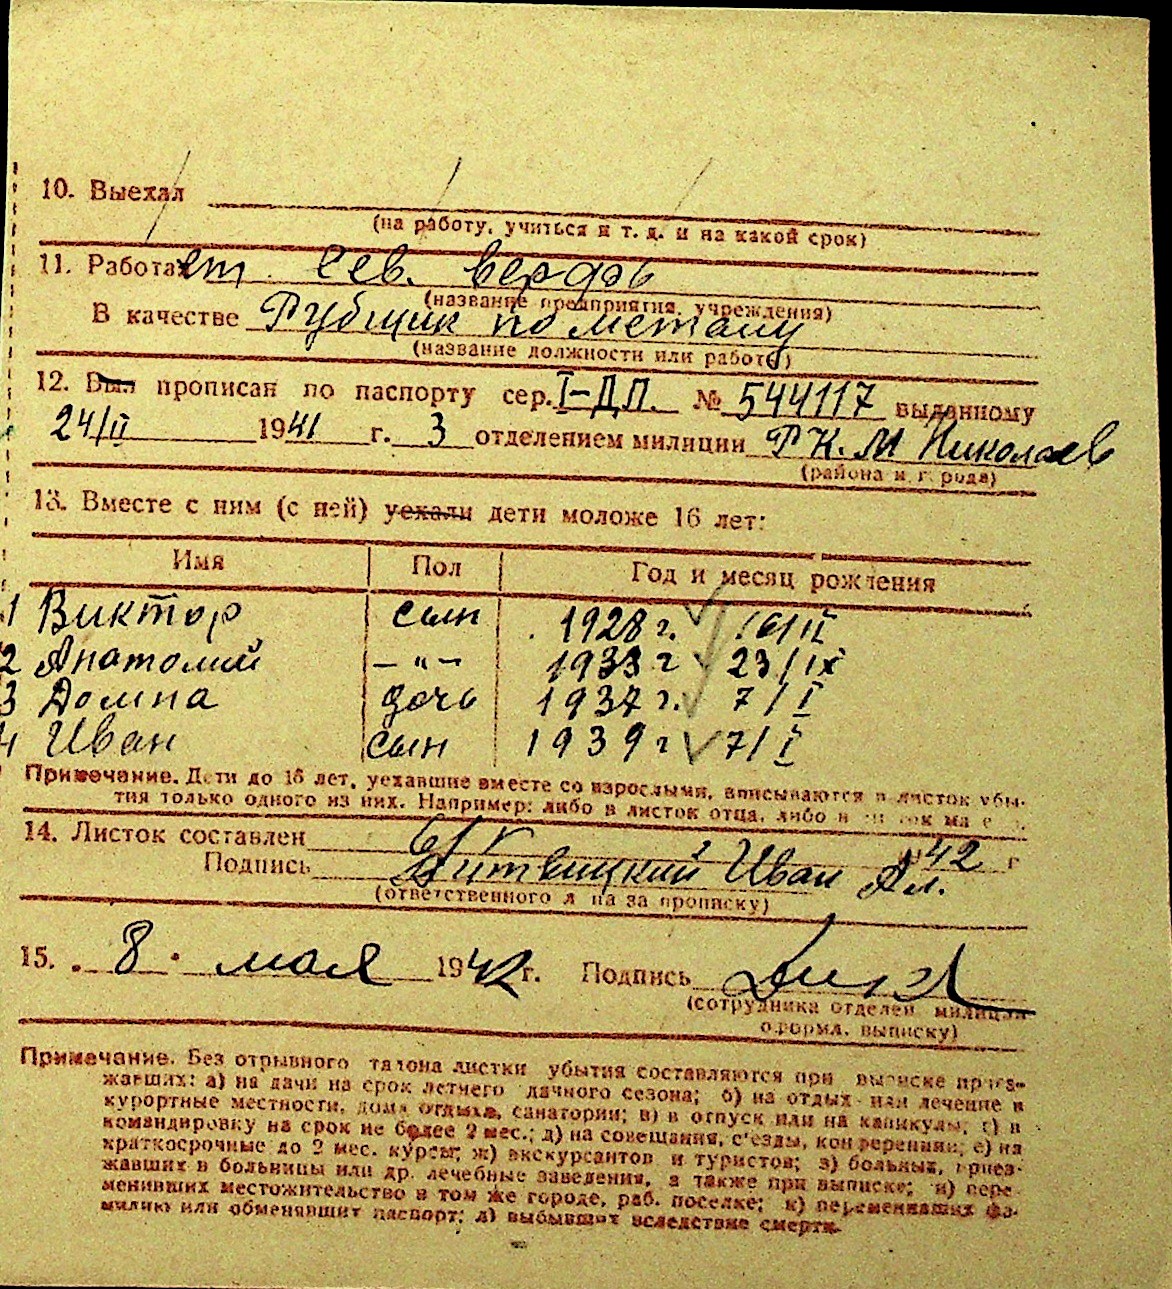 10. Выехал
(на работу, учиться и т. д. и на какой срок)
11. Работает Сев. верфь
(название предприятия, учреждения)
В качестве Рубщик по металу
(название должности или работы)
12. Был прописан по паспорту сер. I-ДП. № 544117 выданному
24/II 1941 г. 3 отделением милиции РК.М Николаев
(района и города)
13. Вместе с ним (с ней) уехали дети моложе 16 лет:
Имя Пол Год и месяц рождения
1 Виктор сын 1928 г. 16/II
2 Анатолий -"- 1933 г 23/IX
3 Домна дочь 1937 г. 7/I
4 Иван сын 1939 г 7/I
Примечание. Дети до 16 лет, уехавшие вместе со взрослыми, вписываются в листок убы-
тия только одного из них. Например: либо в листок отца, либо в
14. Листок составлен 42 г
Подпись Витвицкий Иван Ал.
(ответственного за прописку)
15. 8. мая 1942 г. Подпись
(сотрудника отделен. милиции
оформл. выписку)
Примечание. Без отрывного талона листки убытия составляются при выписке приез-
жавших: а) на дачи на срок летнего дачного сезона; б) на отдых или лечение в
курортные местности, дома отдыха, санатории; в) в отпуск или на каникулы; г) в
командировку на срок не более 2 мес.; д) на совещания, с'езды, конференции; е) на
краткосрочные до 2 мес. курсы; ж) экскурсантов и туристов; з) больных, приез-
жавших в больницы или др. лечебные заведения, а также при выписке; и) пере-
менивших местожительство в том же городе, раб. поселке; к) переменивших фа-
милию или обменявших паспорт; л) выбывших вследствие смерти.